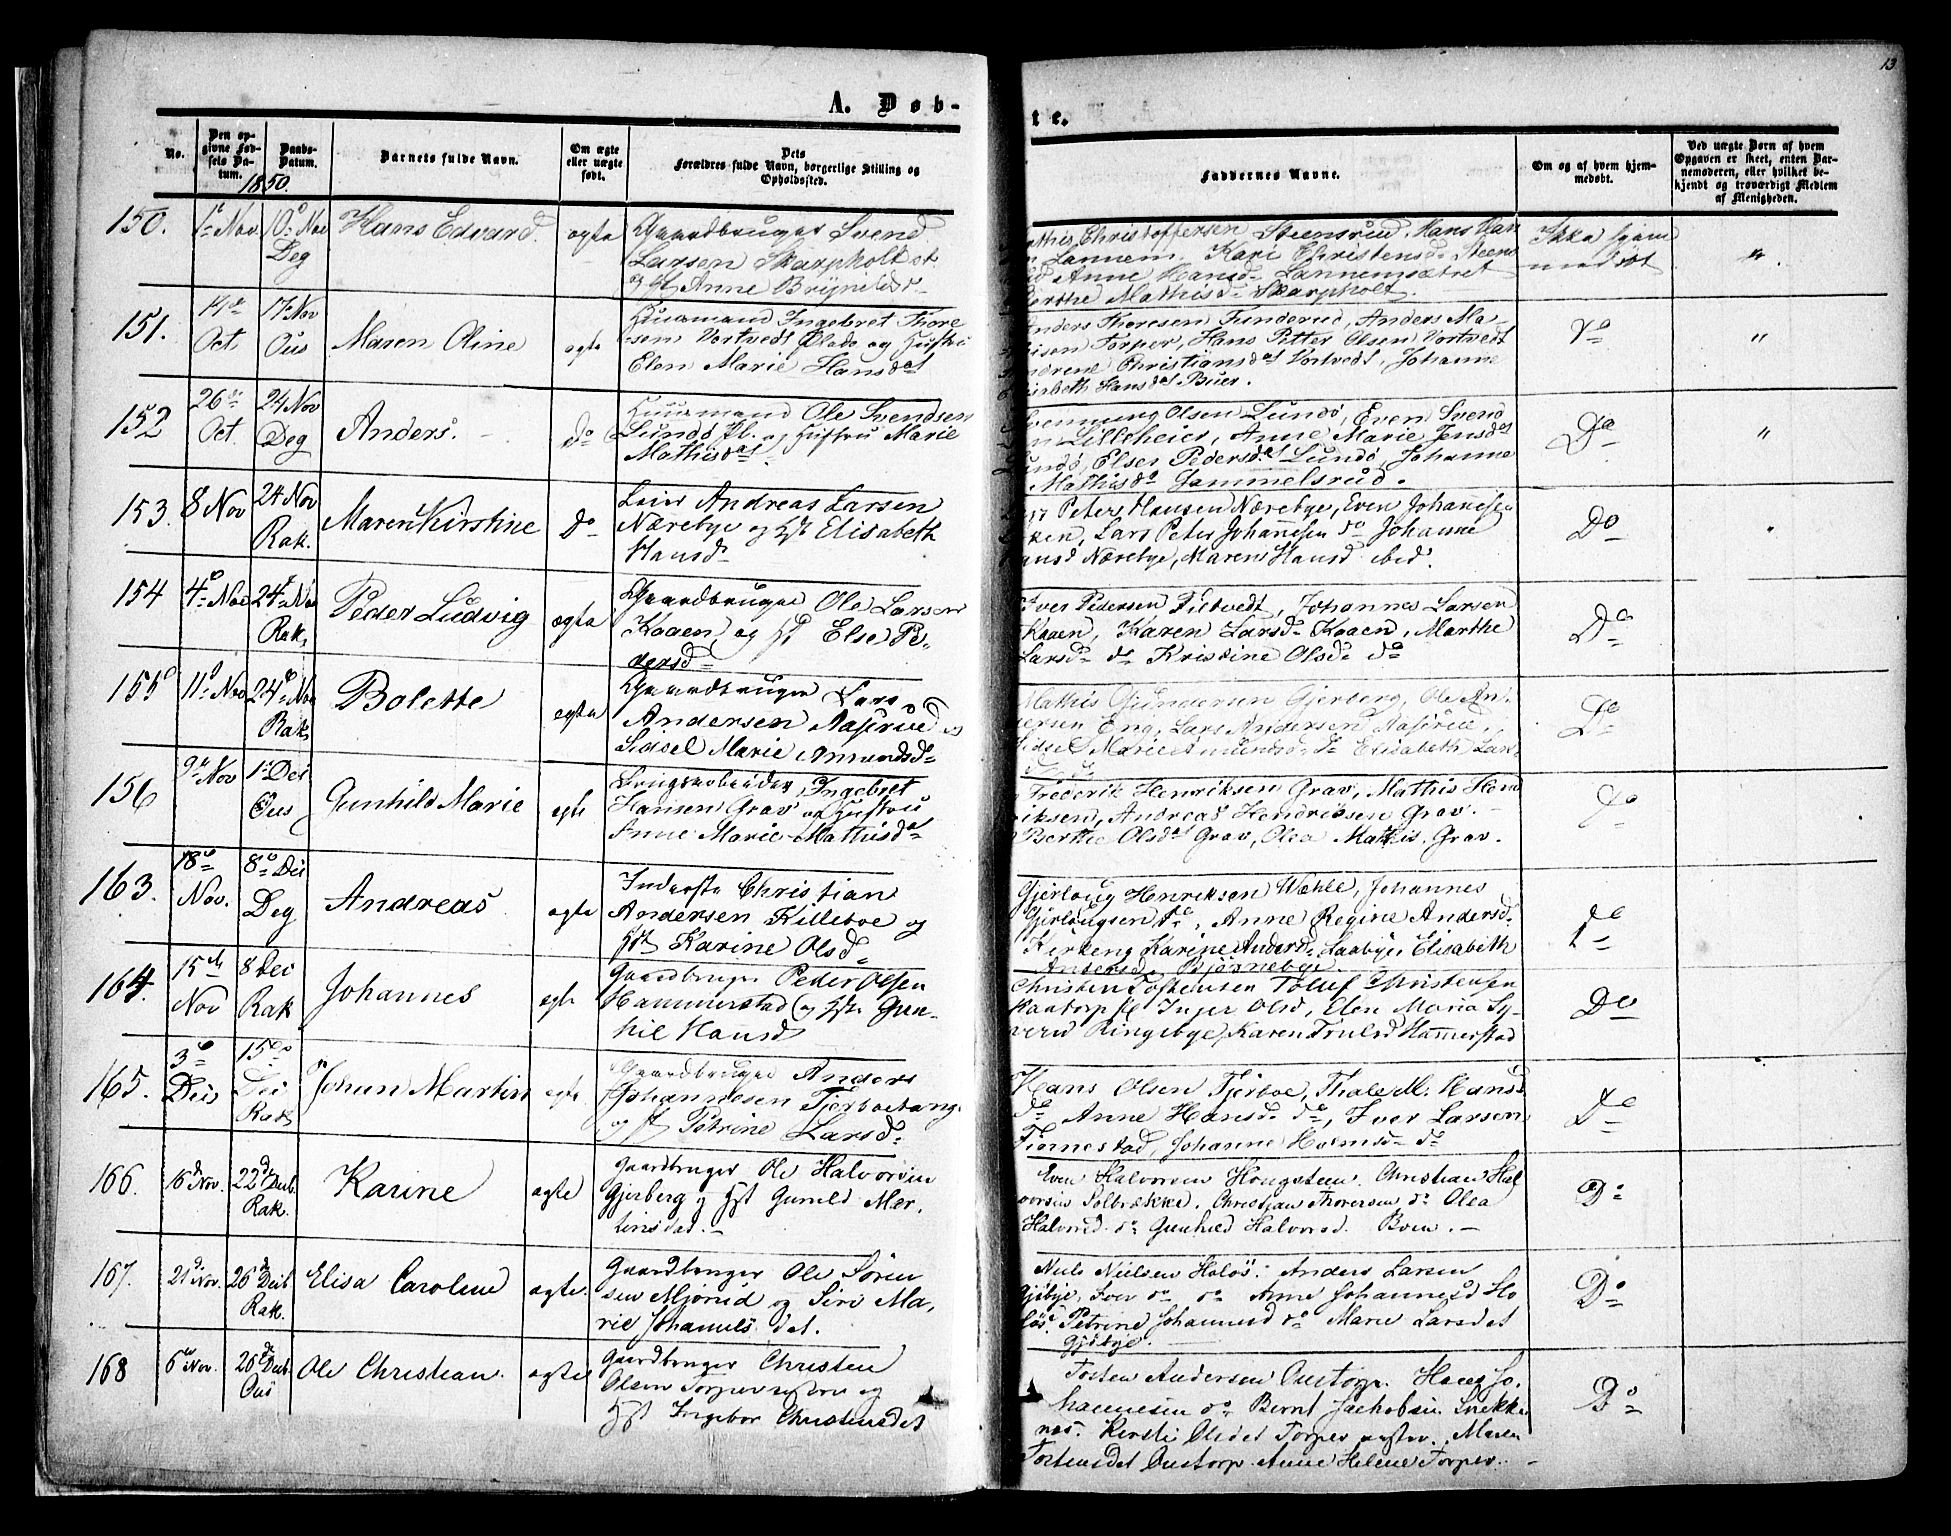 13
A. Døb-
te.
No.
Den op-
givne Fød-
sels Da-
tum.
Daabs-
Datum.
Barnets fulde Navn.
Om ægte
eller uægte
født.
Dets
Forældres fulde Navn, borgerlige Stilling og
Opholdssted.
Faddernes Navne.
Om og af hvem hjem-
medøbt.
Ved uægte Børn af hvem
Opgaven er skeet, enten Bar-
nemoderen, eller hvilket be-
kjendt og troværdigt Medlem
af Menigheden.
1850.
150. 1 Nov. 10 Nov
Deg
Hans Edvard. ægte
Gaardbruger Svend
Larsen Skarpholt et
og Anne Brynildsd
Mathis Christoffersen Steensrud, Hans Han
Lannem. Kari Christensd Steens
Anne Hansd Lannemsætret
Berthe Mathisd Skarpholt.
Ikke hjem
medøbt
"
151. Oct. 17 Nov
Ous
Maren Oline ægte
Huusmand Ingebret Thore
sen Vortvedt og Hustru
Elen Marie Hansdat
Anders Thoresen Funderud, Anders Ma-
Torper, Hans Petter Olsen Vortvedt
Christiansdat Vortvedt, Johanne
Hansdat Buer.
"
152 26 Oct. 24 Nov
Deg
Anders. Do
Huusmand Ole Svendsen
Lundø Pl. og Hustru Marie
Mathisdat
Olsen Lundø, Even Svend
Lilleheier, Anne Marie Jensdat
Lundø, Elser Pedersdat Lundø, Johanne
Mathisd Gammelsrud.
Do
"
153. 8 Nov 24 Nov
Rak.
Maren Kirstine Do
Leier Andreas Larsen
Nærebye og Elisabeth
Hansd
Peter Hansen Nærebye, Even Johannesen
Lars Peter Johannesen do Johanne
Hansd Nærebye, Maren Hansd ibid.
Do
154 4 Nov 24 Nov
Rak.
Peder Ludvig ægte
Gaardbruger Ole Larsen
Kaaen, og Else Pe-
dersd
Iver Pedersen Tietvedt, Johannes Larsen
Kaaen, Karen Larsd Kaaen, Marthe
Larsd do Kristine Olsd do
Do
155 11 Nov 24 Nov
Rak.
Bolette ægte
Gaardbruger Lars
Andersen Aasrud og
Sidsel Marie Amundsd
Mathis Gundersen Gjerberg, Ole An-
dersen Eng, Lars Andersen Aasrud,
Sidsel Marie Amundsd do Elisabeth Lars
Do
156 9 Nov 1 Dec
Ous
Gunhild Marie ægte
Brugsarbeider Ingebret
Hansen Grav og Hustru
Anne Marie Mathisdat
Frederik Henriksen Grav, Mathis Hen
riksen, Andreas Hendriksen Grav.
Berthe Olsdat Grav, Olea Mathis. Grav.
163. 18
Nov.
8 Dec
Deg
Andreas ægte
Inderste Christian
Andersen Killeboe og
Karine Olsd
Gjerloug Henriksen Wæhle, Johannes
Gjerlougsen do, Anne Regine Andersd
Kirkeng Karine Andersd Laabye, Elisabeth
Andersd Bjørnebye.
Do
164. 15
Nov
8 Dec
Rak
Johannes ægte
Gaardbruger Peder Olsen
Hammerstad og Gun-
hil Hansd
Christen Tostensen Toluf Christensen
Kaatorp Inger Olsd, Elen Maria Sy-
verd Ringebye, Karen Trulsd Hammerstad
Do
165. 3
Dec
15
Dec
Rak
Johan Martin ægte
Gaardbruger Anders
Johannesen Tjerboetang
og Petrine Larsd
Hans Olsen Tjerboe, Thale M. Hansd
do Anne Hansd do, Iver Larsen
Tjernestad, Johanne Holmsd do
Do
166. 16 Nov. 22 Decb.
Rak.
Karine ægte
Gaardbruger Ole Halvorsen
Gjerberg og Hst Gunild Mar-
tinsdat.
Even Halvorsen Hougsteen. Christian Hal
vorsen Solbrække. Christian Thoresen do Olea
Halvorsd. do Gunhild Halvorsd. Boen.
Do
167. 21 Nov. 26 Decb.
Rak.
Elisa Caroline ægte
Gaardbruger Ole Søren
sen Mjørud og Siri Ma-
rie Johannes dat.
Niels Nielsen Holøs. Anders Larsen
Gjøbye, Iver do do Anne Johannesd Ho
løs. Petrine Johannesd do Maria Larsdat
Gjøbye.
Do
168 6 Nov. 26 Decb.
Ous
Ole Christian. ægte
Gaardbruger Christen
Olsen Torper og
Hst Ingebor Christensdat
Tosten Andersen Oustorp. Hans Jo-
hannesen do Bernt Jachobsen Snekke
næs. Kirsti Olsdat Torper. Maren
Tostensdat Oustorp Anne Helene Torper.
Do